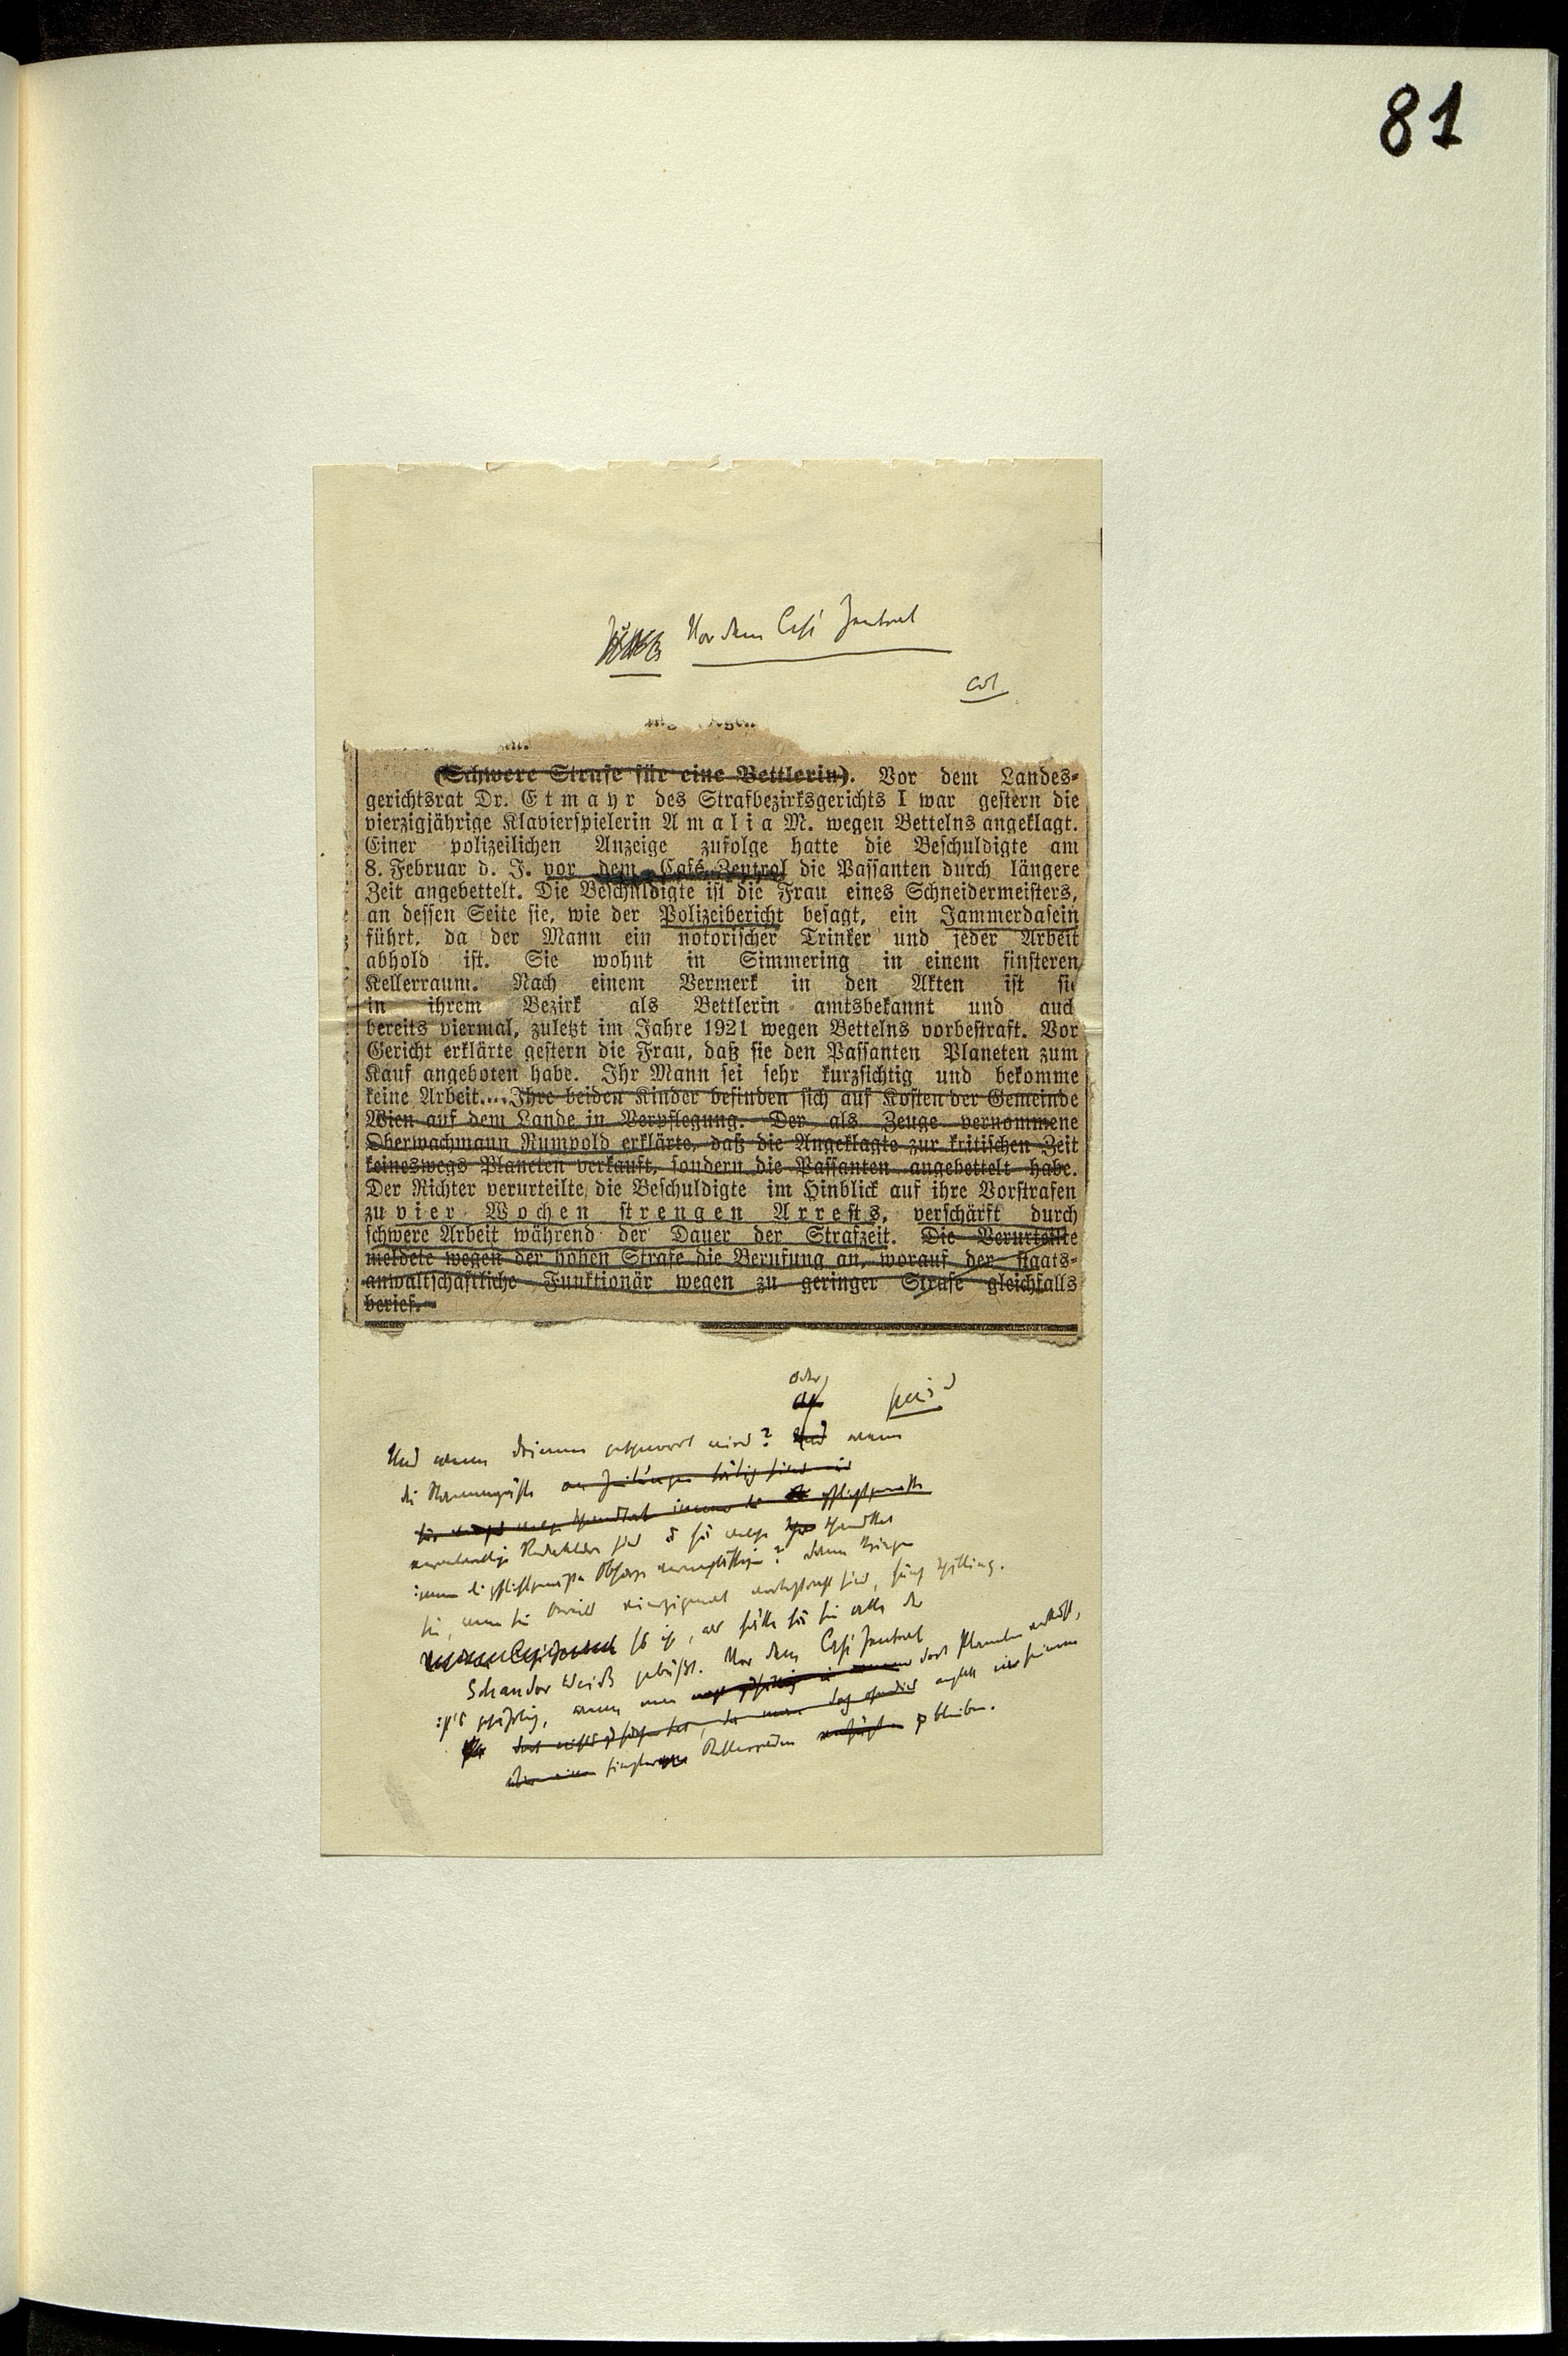 81
Vor dem Café Zentral
(Schwere Strafe für eine Bettlerin). Vor dem Landes-
gerichtsrat Dr. Etmayr des Strafbezirksgerichts I war gestern die
vierzigjährige Klavierspielerin Amalia M. wegen Bettelns angeklagt.
Einer polizeilichen Anzeige zufolge hatte die Beschuldigte am
8. Februar d. J. vor dem Café Zentral die Passanten durch längere
Zeit angebettelt. Die Beschuldigte ist die Frau eines Schneidermeisters,
an dessen Seite sie, wie der Polizeibericht besagt, ein Jammerdasein
führt, da der Mann ein notorischer Trinker und jeder Arbeit
abhold ist. Sie wohnt in Simmering in einem finsteren
Kellerraum. Nach einem Vermerk in den Akten ist sie
in ihrem Bezirk als Bettlerin amtsbekannt und auch
bereits viermal, zuletzt im Jahre 1921 wegen Bettelns vorbestraft. Vor
Gericht erklärte gestern die Frau, daß sie den Passanten Planeten zum
Kauf angeboten habe. Ihr Mann sei sehr kurzsichtig und bekomme
keine Arbeit.... Ihre beiden Kinder befinden sich auf Kosten der Gemeinde
Wien auf dem Lande in Verpflegung. Der als Zeuge vernommene
Oberwachmann Rumpold erklärte, daß die Angeklagte zur kritischen Zeit
keineswegs Planeten verkauft, sondern die Passanten angebettelt habe.
Der Richter verurteilte die Beschuldigte im Hinblick auf ihre Vorstrafen
zu vier Wochen strengen Arrests, verschärft durch
schwere Arbeit während der Dauer der Strafzeit. Die Verurteilte
meldete wegen der hohen Strafe die Berufung an, worauf der staats-
anwaltschaftliche Funktionär wegen zu geringer Strafe gleichfalls
berief.
oder
Und wenn drinnen gepumpt wird? Und wenn
die Stammgäste
verantwortliche Redakteure sind
immer die pflichtgemäße Obsorge vernachlässigen? Dann kriegen
sie, wenn sie bereits vierzigmal vorbestraft sind, fünf Schilling.
So ist, als hätte für sie alle der
Schandor Weiß gebüßt. Vor dem Café Zentral
ist's gefährlich, wenn man dort Planeten verkauft,
anstatt
zu bleiben.